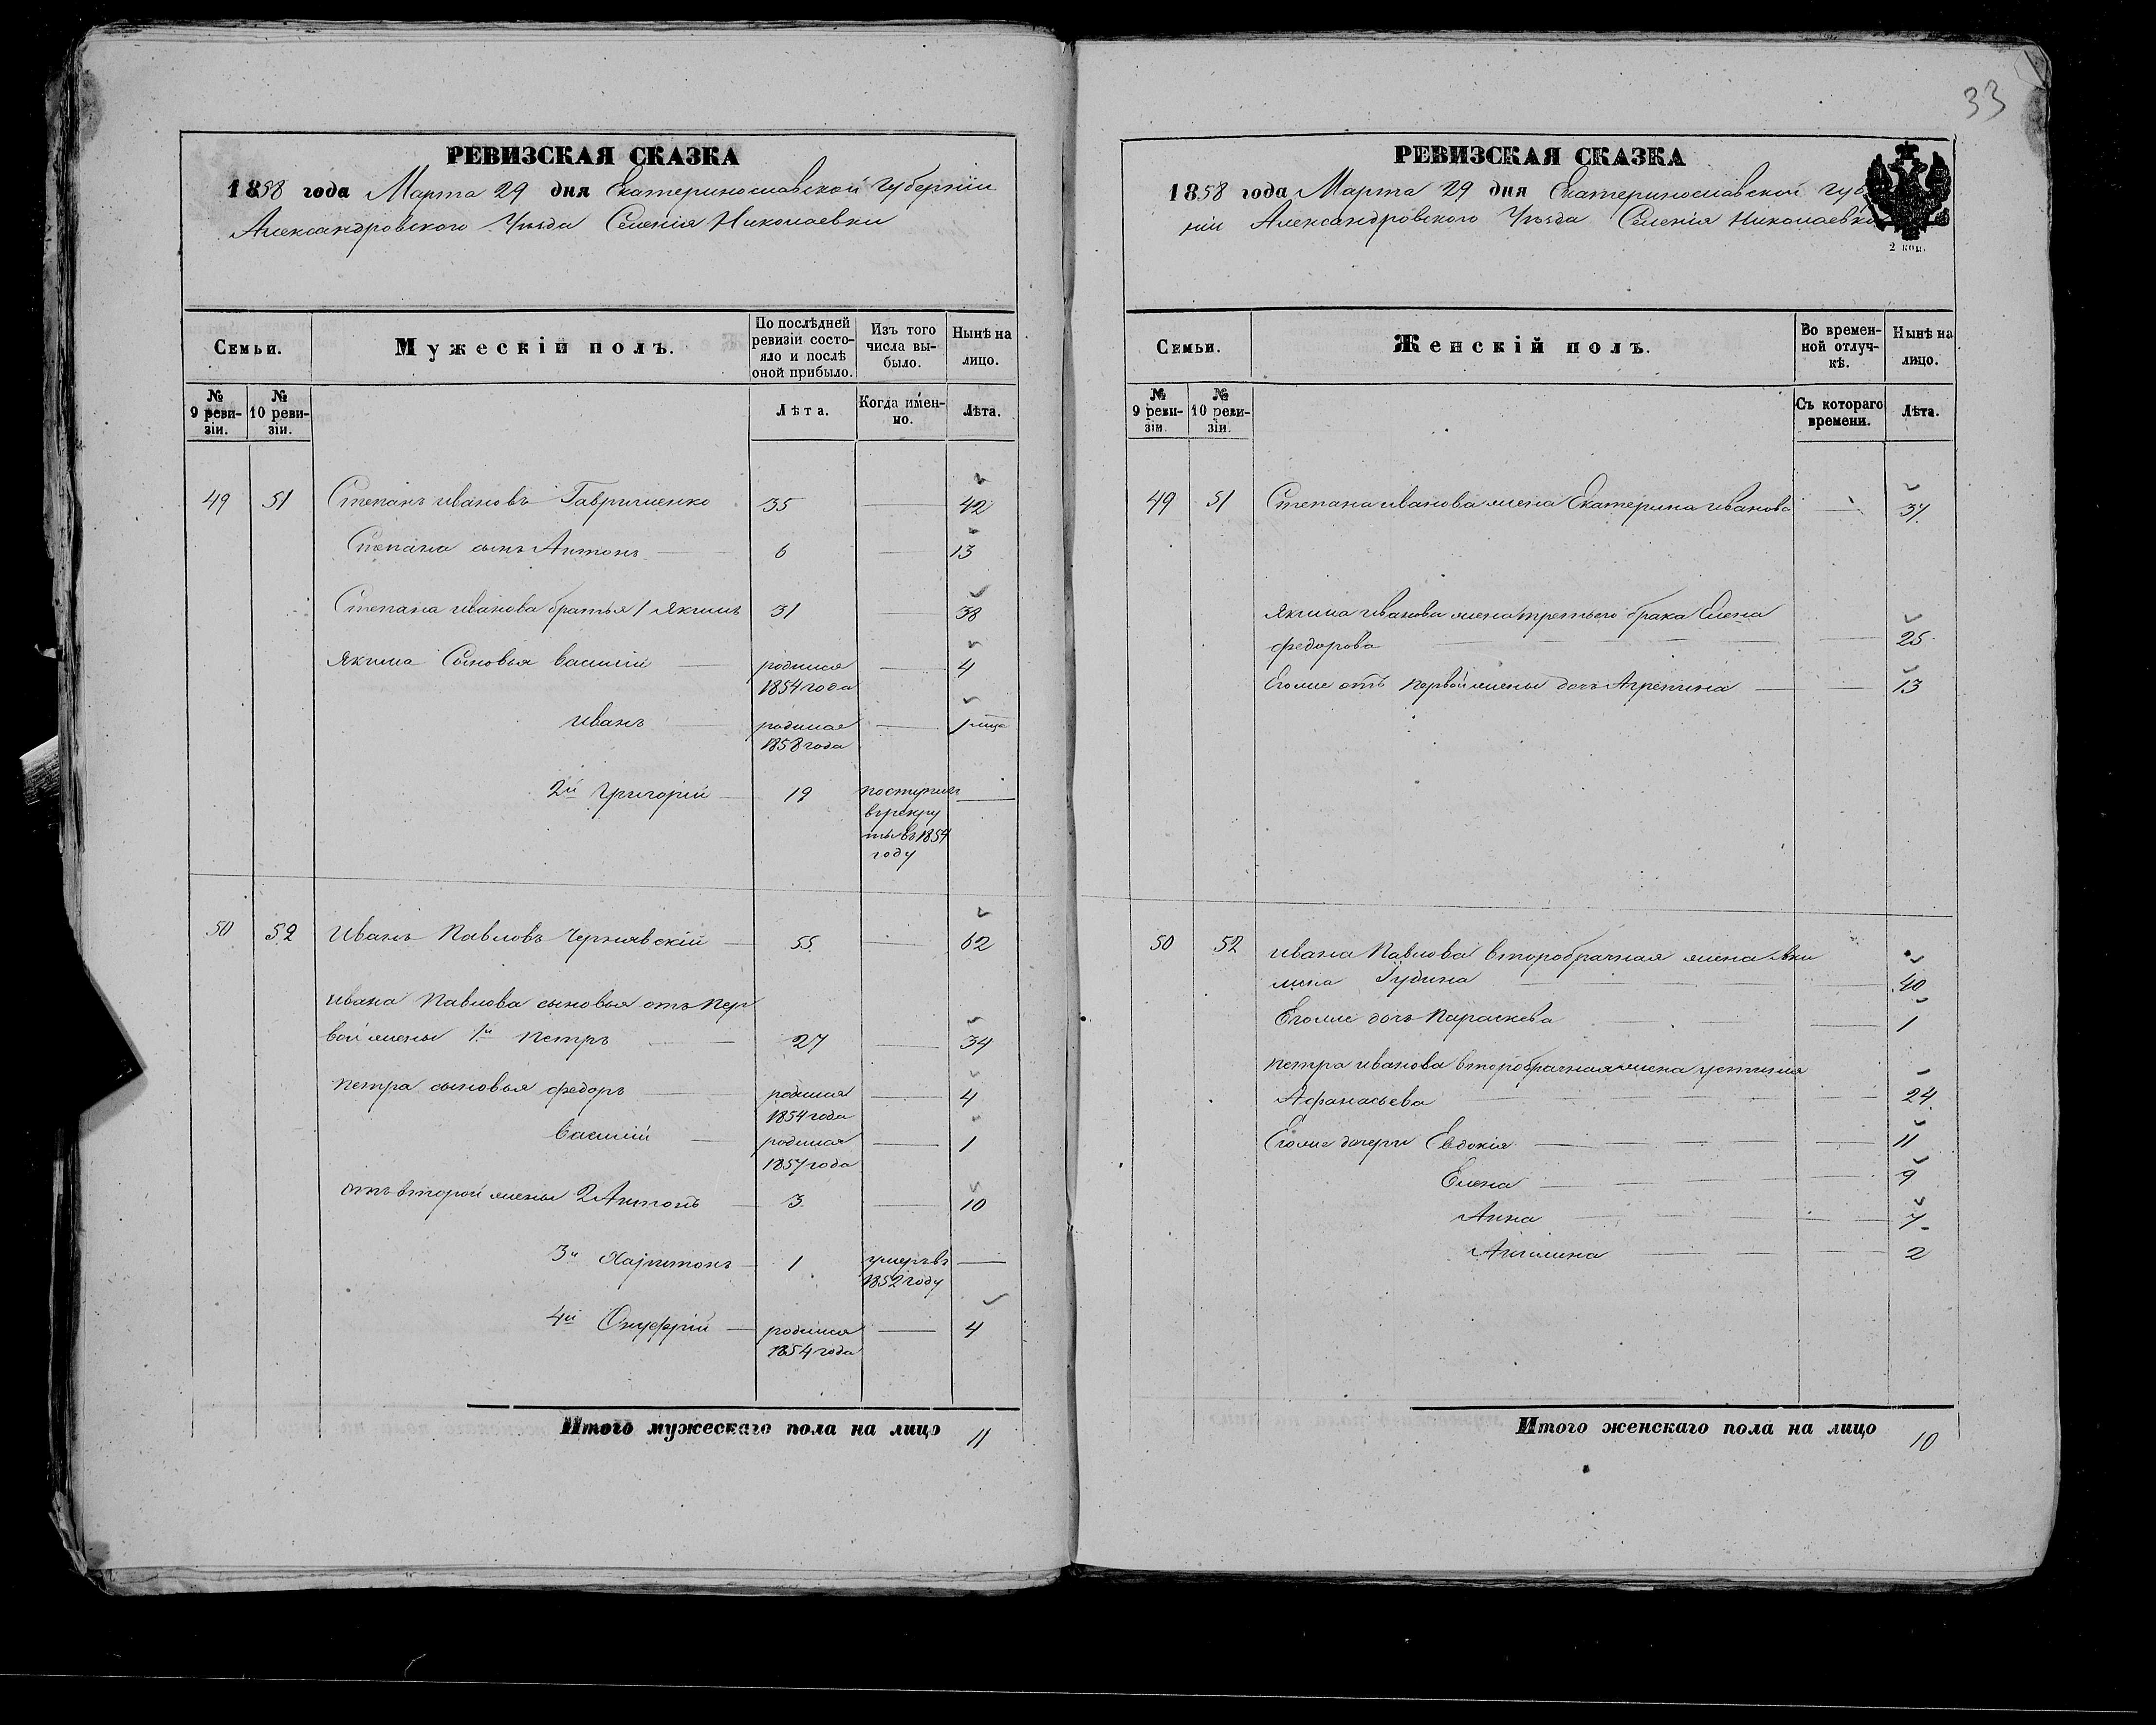 РЕВИЗСКАЯ СКАЗКА
1858 года Марта 29 дня Екатеринославской Губерніи
Александровского Уѣзда Селенія Николаевки
Семьи.
Мужескій полъ.
По послѣдней ревизіи состояло и послѣ оной прибыло.
Изъ того числа выбыло.
Нынѣ на лицо.
№ 9 ревизіи.
№ 10 ревизіи.
Лѣта.
Когда именно.
Лѣта.
49 51 Степанъ Ивановъ Гавриленко 35 — 42
Степана сынъ Антонъ — 6 — 13
Степана Иванова братья 1 Якимъ 31 — 38
Якима Сыновья Василій — родился — 4
1854 года
Иванъ — родился — 1 мца
1858 года
2й Григорій — 19 поступилъ —
въ рекру
ты въ 1854
году
50 52 Иванъ Павловъ Чернявскій — 55 — 62
Ивана Павлова сыновья отъ пер
вой жены 1й Петръ — 27 — 34
Петра сыновья Федоръ — родился — 4
1854 года
Василій — родился — 1
1857 года
отъ второй жены 2 Антонъ — 3 — 10
3й Харитонъ — 1 умеръ въ —
1852 году
4й Онуфрій — родился — 4
1854 года
Итого мужескаго пола на лицо 11
33
РЕВИЗСКАЯ СКАЗКА
1858 года Марта 29 дня Екатеринославской Губ
ніи Александровского Уѣзда Селенія Николаевки
2 коп.
Семьи.
Женскій полъ.
Во временной отлучкѣ.
Нынѣ на лицо.
№ 9 ревизіи.
№ 10 ревизіи.
Съ котораго времени.
Лѣта.
49 51 Степана Иванова жена Екатерина Иванова — 37
Якима Иванова жена третьего брака Елена
Федорова — — 25
Его же отъ первой жены дочь Агрепина — — 13
50 52 Ивана Павлова второбрачная жена
Гудина — — 40
Его же дочь Параскева — — 1
Петра Иванова второбрачная жена Устинія
Афанасьева — — 24
Его же дочери Евдокія — — 11
Елена — — 9
Анна — — 7
— — 2
Итого женскаго пола на лицо 10